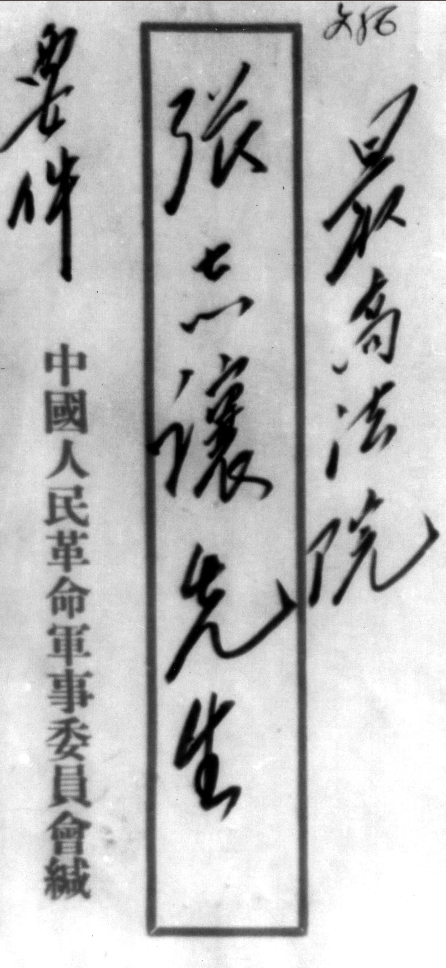 最高法院
張志讓先生
要件
中國人民革命軍事委員會緘